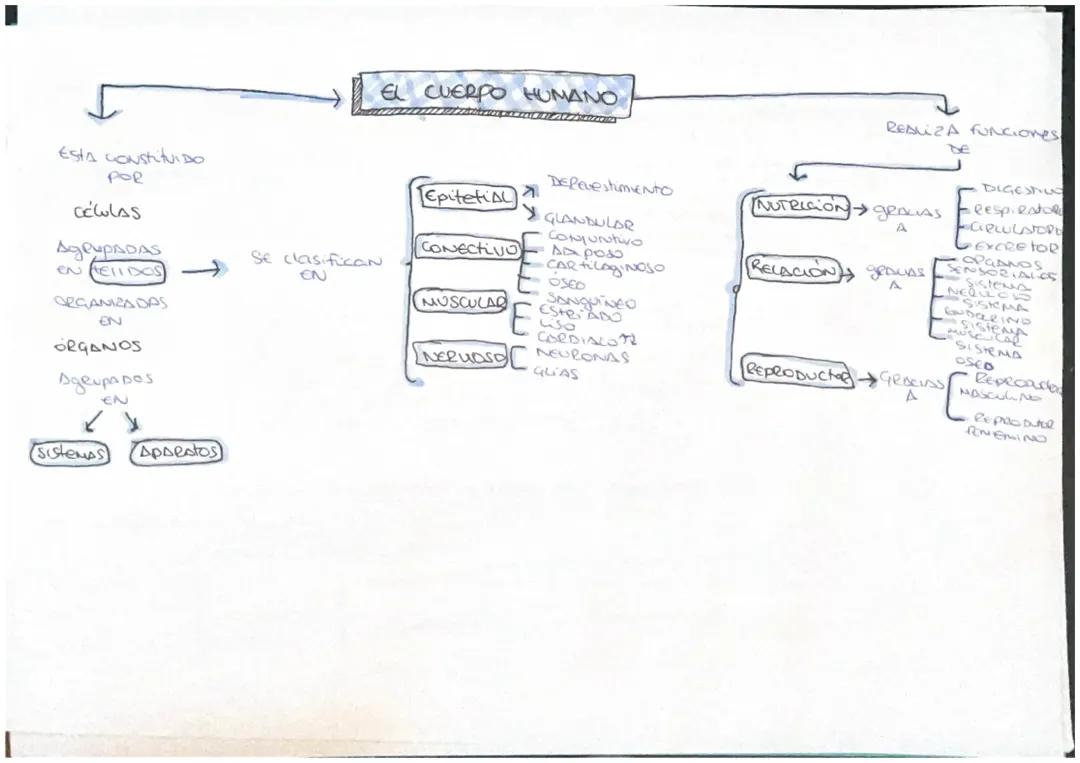 EL CUERPO HUMANO
ESTA CONSTITUIDO
POR
CÉLULAS
AGRUPADAS
EN TEJIDOS
ORGANIZADAS
EN
ÓRGANOS
AGRUPADOS
EN
SISTEMAS
APARATOS
SE CLASIFICAN
EN
EPITETIAL
DEREVESTIMIENTO
GLANDULAR
CONECTIVO
CONJUNTIVO
ADIPOSO
CARTILAGINOSO
ÓSEO
SANGUÍNEO
MUSCULAR
ESTRIADO
LISO
NERVIOSO
NEURONAS
GLÍAS
REALIZA FUNCIONES
DE
NUTRICIÓN
GRACIAS
A
DIGESTIVO
RESPIRATORIO
CIRCULATORIO
EXCRETOR
RELACIÓN
GRACIAS
A
ÓRGANOS
SENSORIALES
SISTEMA
NERVIOSO
SISTEMA
ENDOCRINO
SISTEMA
MUSCULAR
SISTEMA
OSEO
REPRODUCTOR
GRACIAS
A
REPRODUCTOR
MASCULINO
REPRODUTOR
FEMENINO